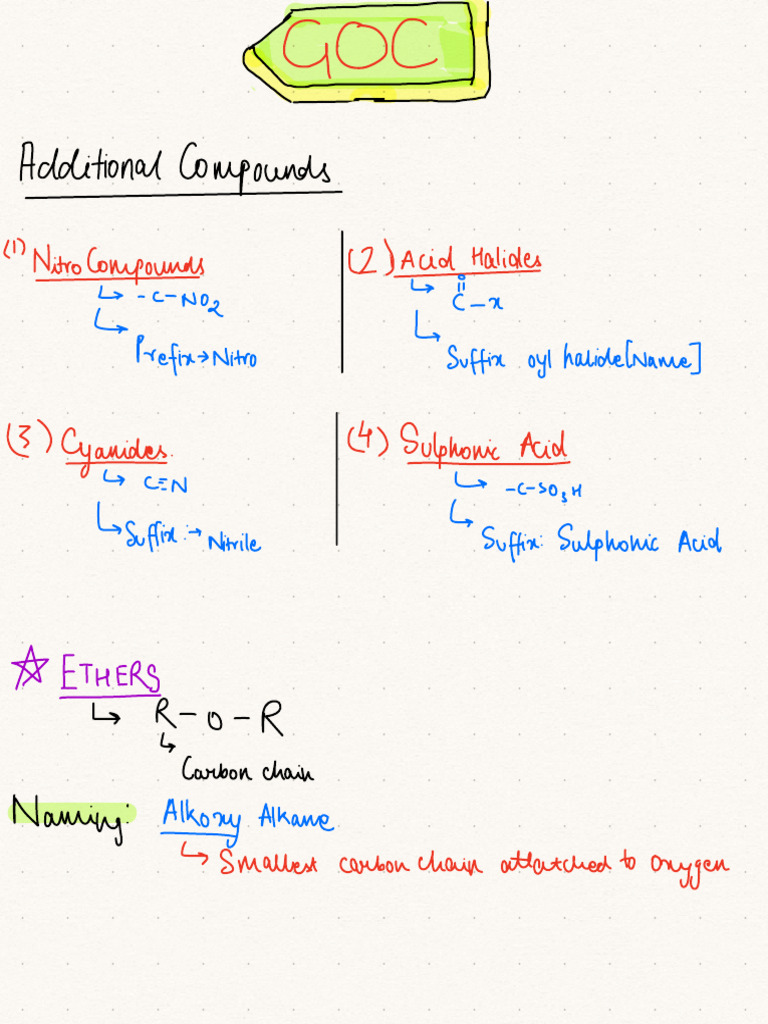 GOC
Additional Compounds
(1) Nitro Compounds
↳ -C-NO2
↳ Prefix → Nitro
(2) Acid Halides
↳ O
C-x
↳ Suffix oyl halide[Name]
(3) Cyanides.
↳ C≡N
↳ Suffix: → Nitrile
(4) Sulphonic Acid
↳ -C-SO3H
↳ Suffix: Sulphonic Acid
☆ ETHERS
↳ R-O-R
↳ Carbon chain
Naming: Alkoxy Alkane
↳ Smallest carbon chain attatched to oxygen